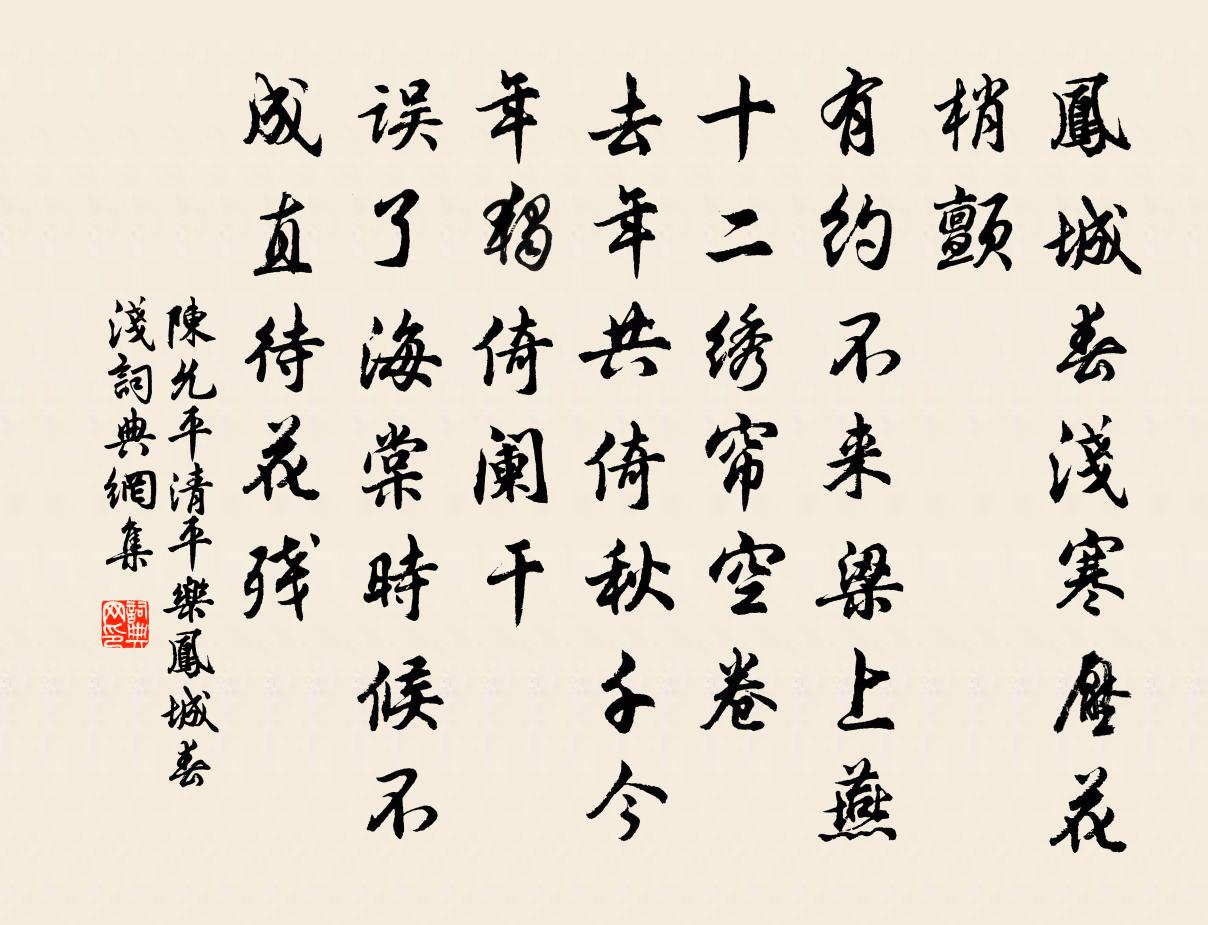 鳳城春淺寒壓花
梢顫
有约不来梁上燕
十二绣帘空卷
去年共倚秋千今
年獨倚阑干
误了海棠時候不
成直待花残
陳允平清平樂鳳城春
淺詞典網集
詞典网印